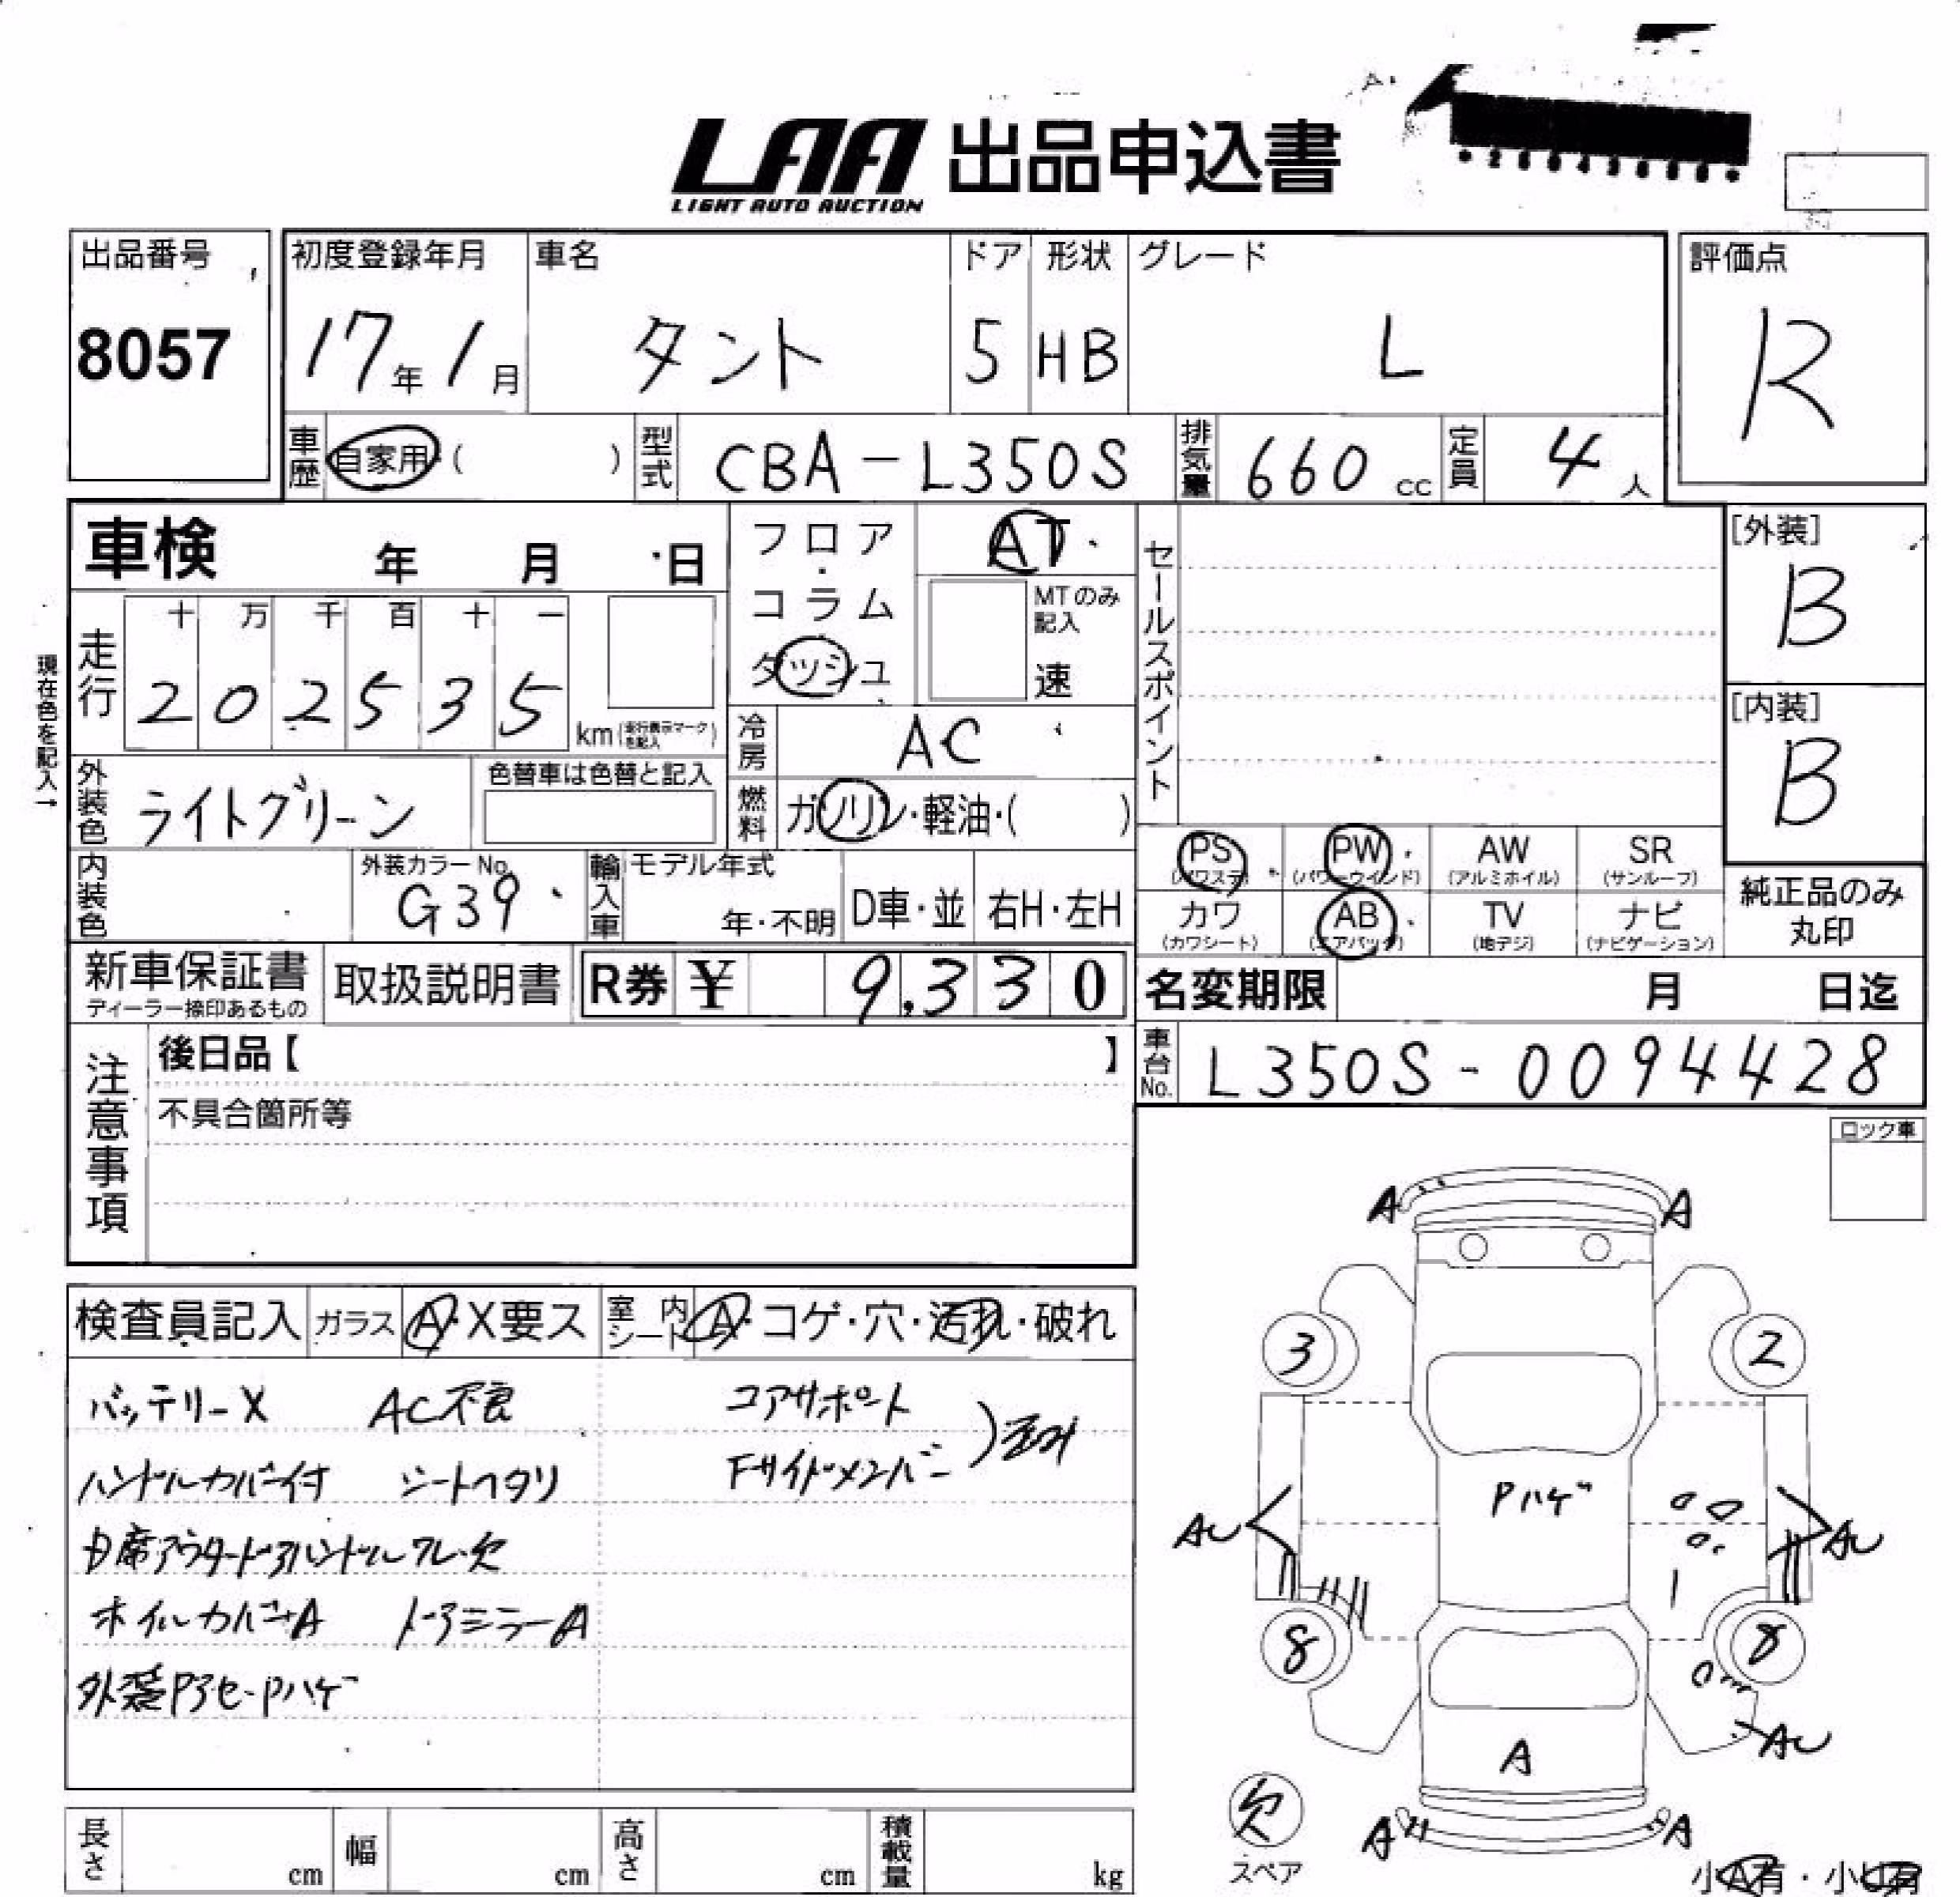 LAA 出品申込書
LIGHT AUTO AUCTION
出品番号
8057
初度登録年月
17年1月
車名
タント
ドア
5
形状
HB
グレード
L
評価点
R
車歴 自家用・( )
型式 CBA-L350S
排気量 660 cc
定員 4人
車検 年 月 日
フロア・コラム
ダッシュ
AT
MTのみ記入
速
セールスポイント
[外装]
B
[内装]
B
現在色を記入→
走行
十 万 千 百 十 一
2 0 2 5 3 5
km(走行表示マークを記入)
冷房 AC
燃料 ガソリン・軽油・( )
外装色 ライトグリーン
色替車は色替と記入
内装色
外装カラーNo.
G39
輸入車
モデル年式
年・不明
D車・並
右H・左H
PS
(パワステ)
PW
(パワーウインド)
AW
(アルミホイル)
SR
(サンルーフ)
カワ
(カワシート)
AB
(エアバッグ)
TV
(地デジ)
ナビ
(ナビゲーション)
純正品のみ
丸印
新車保証書
ディーラー捺印あるもの
取扱説明書
R券 ¥ 9,330
名変期限 月 日迄
車台No. L350S-0094428
注意事項
後日品【 】
不具合箇所等
ロック車
検査員記入
ガラス A・X要ス
室内シート A・コゲ・穴・汚れ・破れ
バッテリーX AC不良
コアサポート
ハンドルカバー付 シートヘタリ
Fサイドメンバー
席アウタードアハンドル 欠
ホイルカバーA ドアミラーA
外装Pアセ・Pハゲ
A A
3 2
Pハゲ
AU AU
8 8
AU
A
欠
スペア
A A
小A有・小U有
長さ cm
幅 cm
高さ cm
積載量 kg